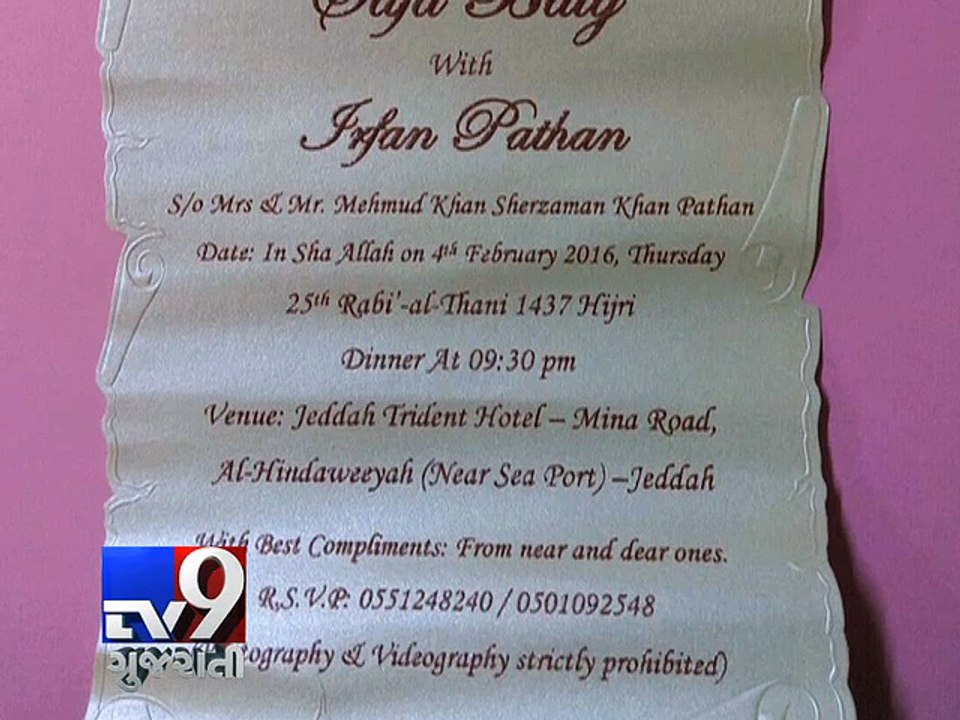 Safa Baig
With
Irfan Pathan
S/o Mrs & Mr. Mehmud Khan Sherzaman Khan Pathan
Date: In Sha Allah on 4th February 2016, Thursday
25th Rabi'-al-Thani 1437 Hijri
Dinner At 09:30 pm
Venue: Jeddah Trident Hotel – Mina Road,
Al-Hindaweeyah (Near Sea Port) –Jeddah
With Best Compliments: From near and dear ones.
R.S.V.P: 0551248240 / 0501092548
ography & Videography strictly prohibited)
TV9
ગુજરાતી